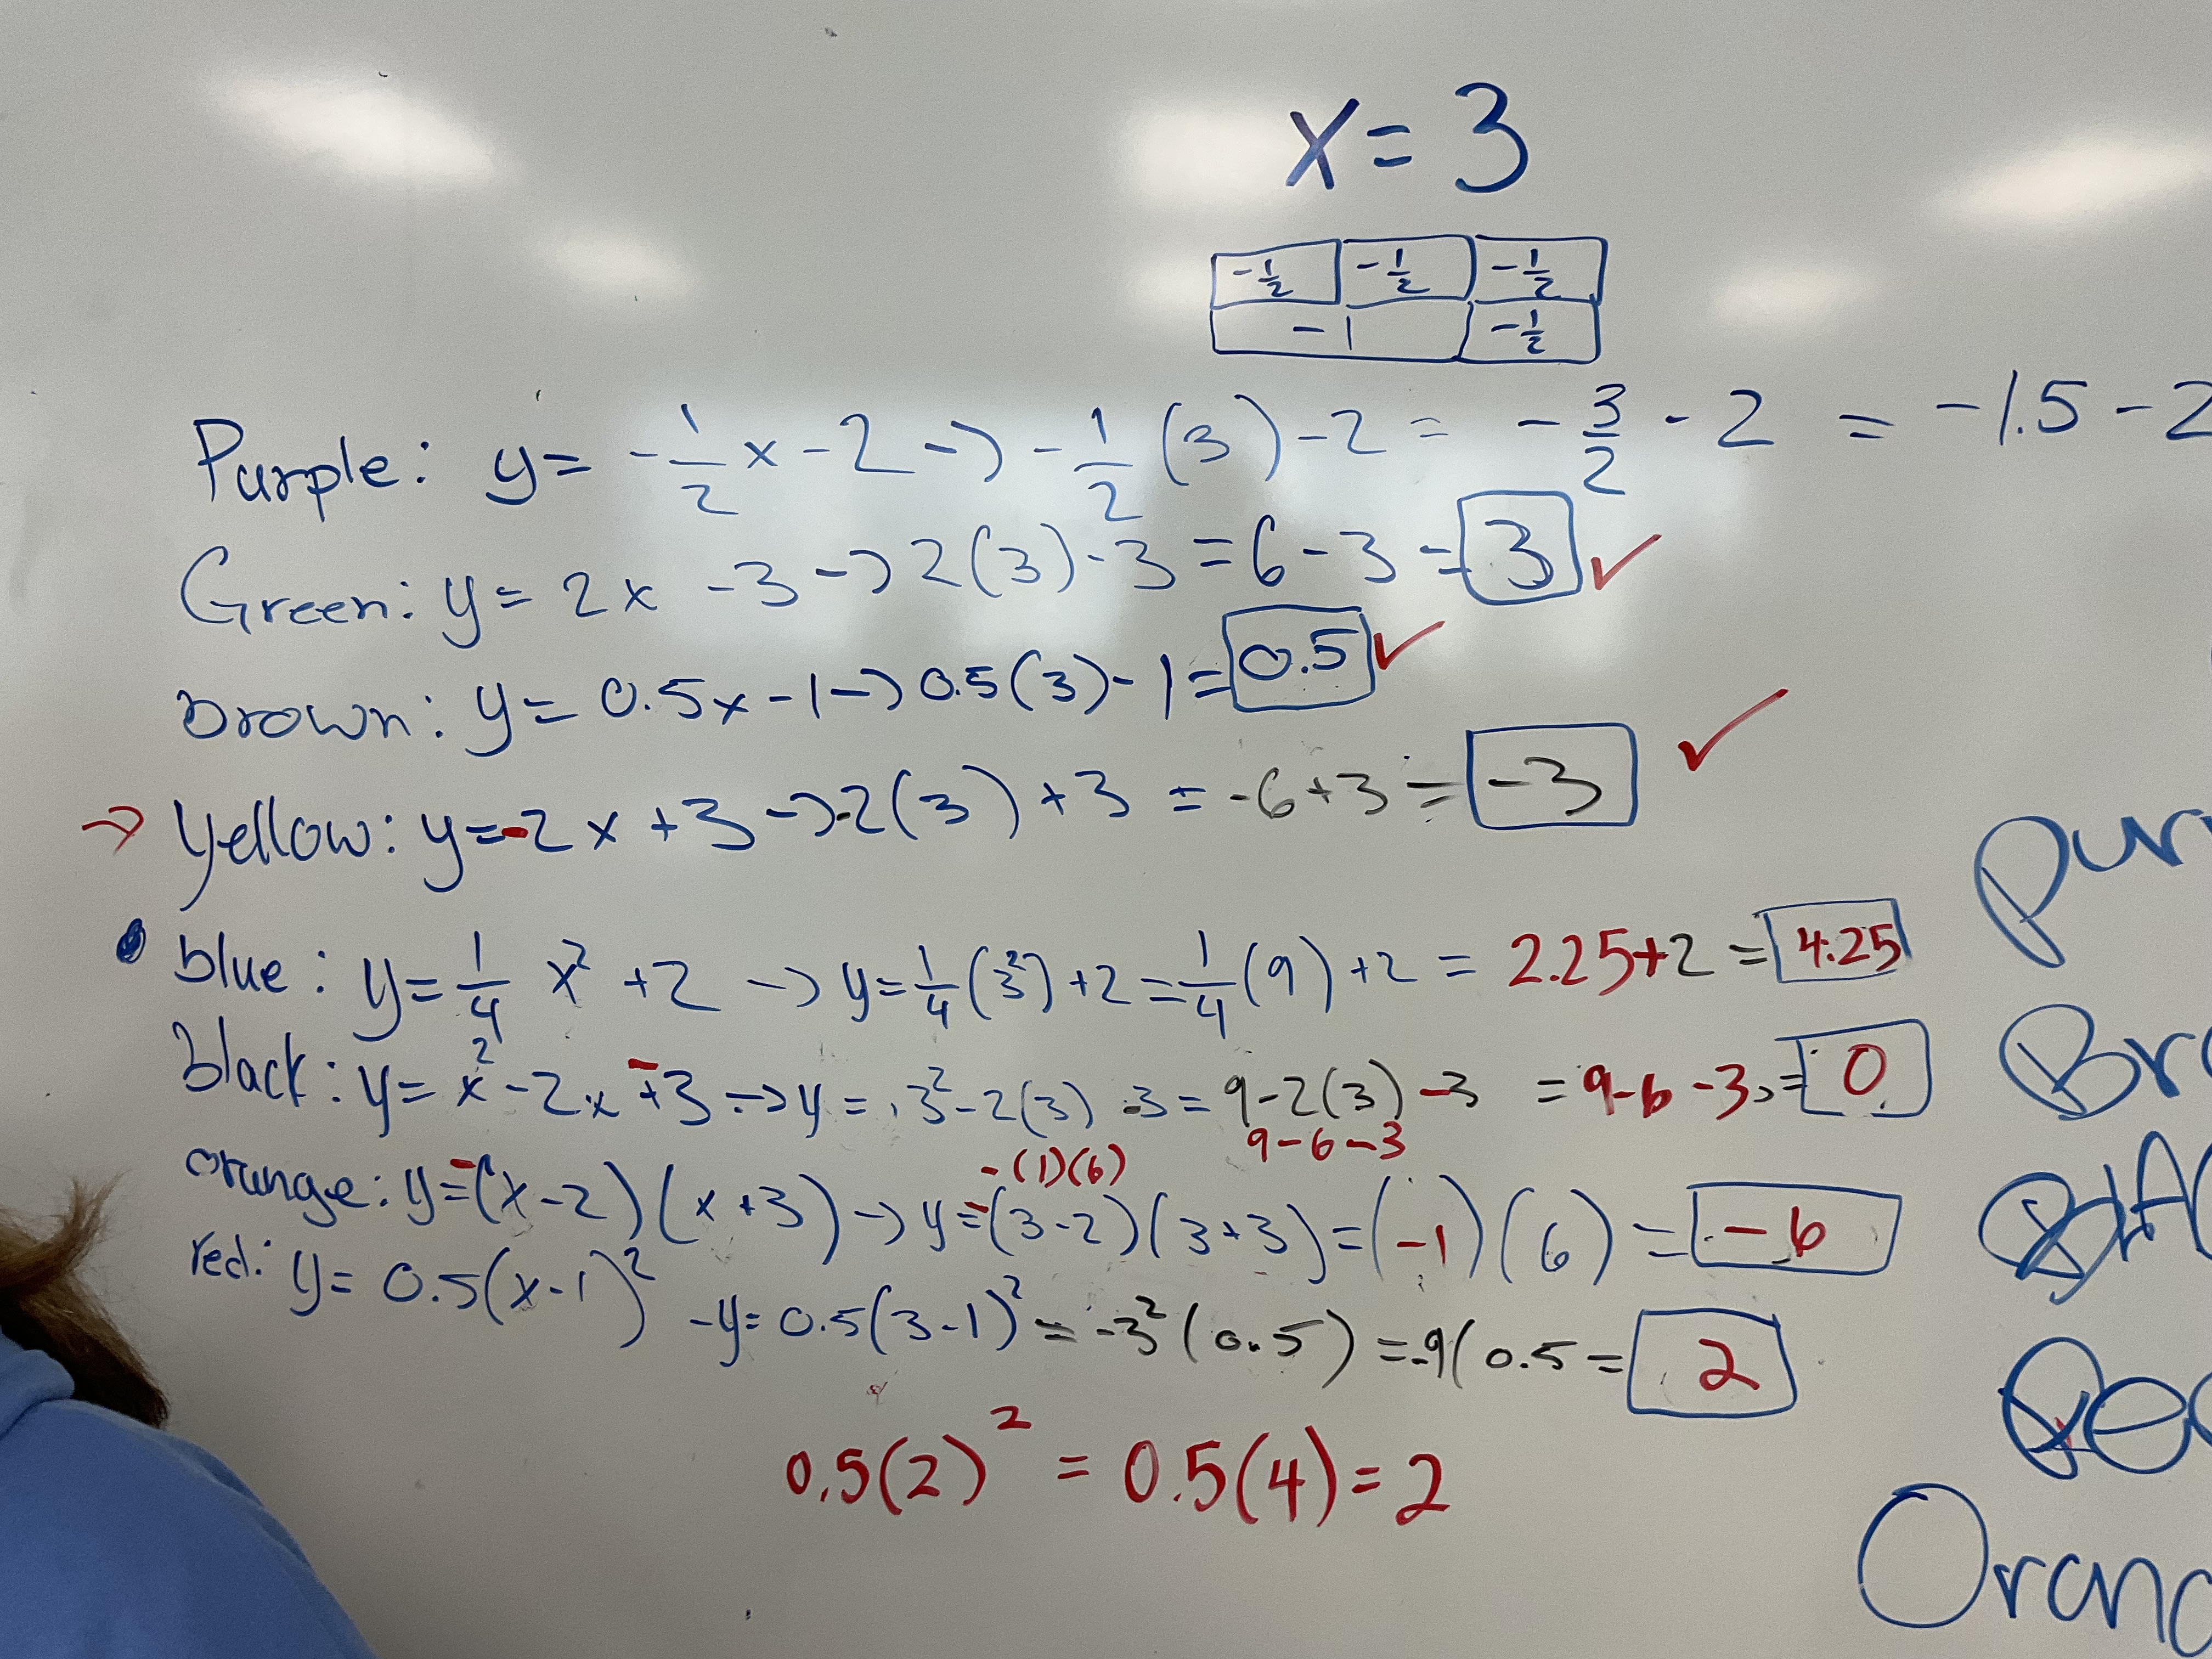 x = 3
-1/2 -1/2 -1/2
-1 -1/2
Purple: y = -1/2 x - 2 → -1/2 (3) - 2 = -3/2 - 2 = -1.5 - 2
Green: y = 2x - 3 → 2(3) - 3 = 6 - 3 = 3 ✓
Brown: y = 0.5x - 1 → 0.5(3) - 1 = 0.5 ✓
→ Yellow: y = -2x + 3 → -2(3) + 3 = -6 + 3 = -3 ✓
blue: y = 1/4 x² + 2 → y = 1/4 (3²) + 2 = 1/4 (9) + 2 = 2.25 + 2 = 4.25
black: y = x² - 2x - 3 → y = 3² - 2(3) - 3 = 9 - 2(3) - 3 = 9 - 6 - 3 = 0
9 - 6 - 3
-(1)(6)
orange: y = -(x - 2)(x + 3) → y = -(3 - 2)(3 + 3) = (-1)(6) = -6
red: y = 0.5(x - 1)² - y = 0.5(3 - 1)² = -3²(0.5) = -9(0.5 = 2
0.5(2)² = 0.5(4) = 2
Pur
Bro
Orang